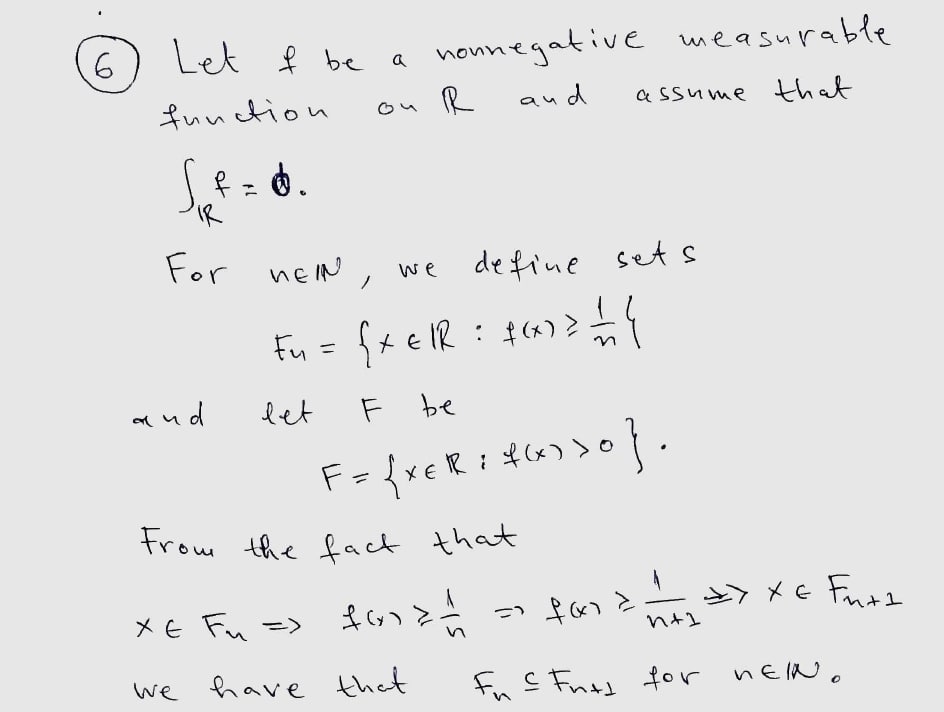 ⑥ Let f be a nonnegative measurable
function on ℝ and assume that
∫_ℝ f = 0.
For n∈ℕ, we define sets
Fn = {x ∈ ℝ : f(x) ≥ 1/n}
and let F be
F = {x ∈ ℝ : f(x) > 0}.
From the fact that
x ∈ Fn => f(x) ≥ 1/n => f(x) ≥ 1/(n+1) => x ∈ Fn+1
we have that Fn ⊆ Fn+1 for n∈ℕ.